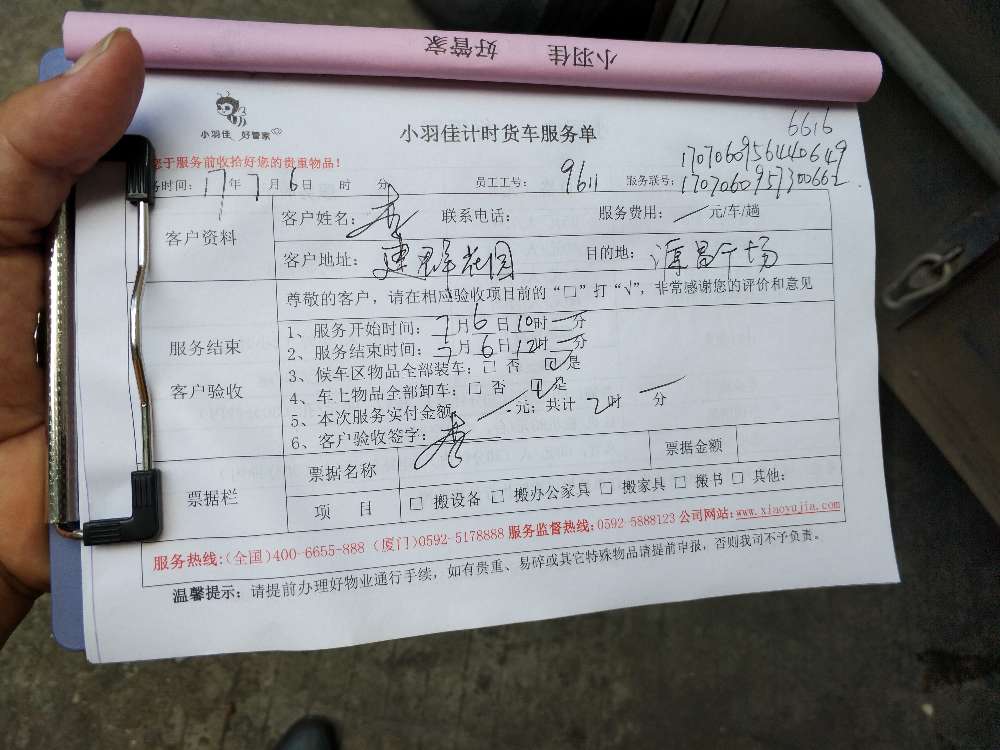 小羽佳 好管家
小羽佳 好管家
小羽佳计时货车服务单
6616
于服务前收拾好您的贵重物品！
1707060956440649
务时间：17年7月6日 时 分 员工工号：9611 服务联号：1707060957300662
客户资料
客户姓名： 联系电话： 服务费用：一元/车/趟
客户地址：建群花园 目的地：广场
尊敬的客户，请在相应验收项目前的“□”打“√”，非常感谢您的评价和意见
服务结束
客户验收
1、服务开始时间：7月6日10时一分
2、服务结束时间：7月6日12时一分
3、候车区物品全部装车：□ 否 ☑是
4、车上物品全部卸车：□ 否 ☑是
5、本次服务实付金额 一元；共计 2时 一分
6、客户验收签字：
票据栏
票据名称 票据金额
项 目 □ 搬设备 □ 搬办公家具 □ 搬家具 □ 搬书 □ 其他：
服务热线:(全国)400-6655-888 (厦门)0592-5178888 服务监督热线:0592-5888123 公司网站:www.xiaoyujia.com
温馨提示：请提前办理好物业通行手续，如有贵重、易碎或其它特殊物品请提前申报，否则我司不予负责。